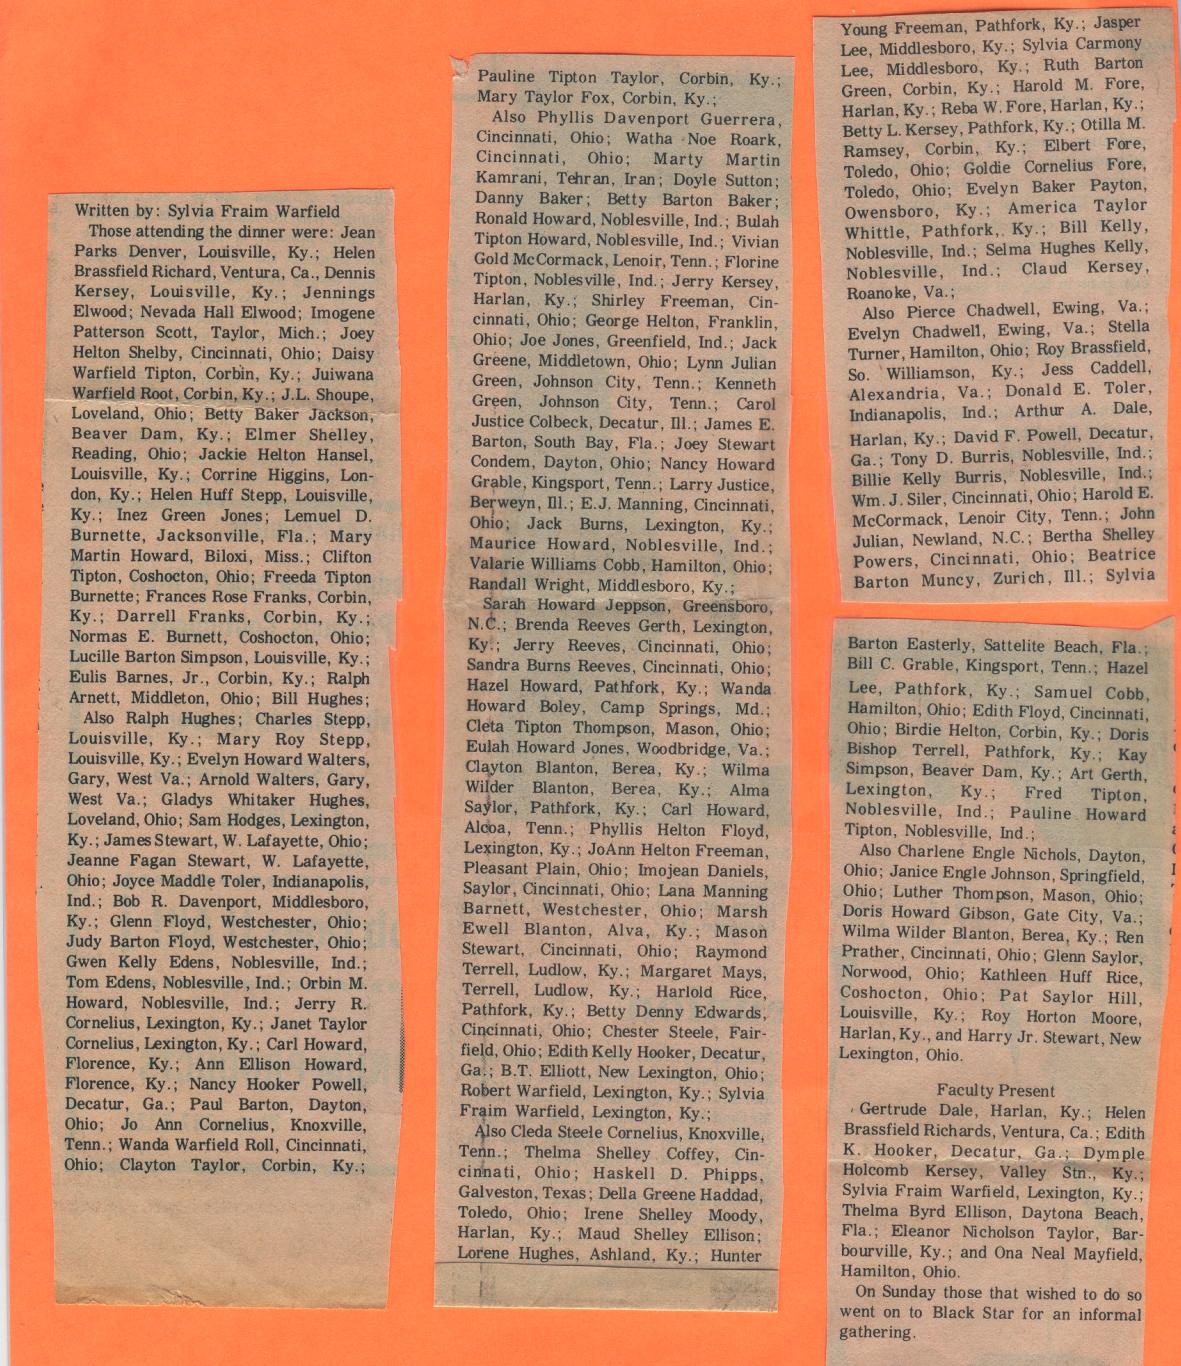 Written by: Sylvia Fraim Warfield
Those attending the dinner were: Jean
Parks Denver, Louisville, Ky.; Helen
Brassfield Richard, Ventura, Ca., Dennis
Kersey, Louisville, Ky.; Jennings
Elwood; Nevada Hall Elwood; Imogene
Patterson Scott, Taylor, Mich.; Joey
Helton Shelby, Cincinnati, Ohio; Daisy
Warfield Tipton, Corbin, Ky.; Juiwana
Warfield Root, Corbin, Ky.; J.L. Shoupe,
Loveland, Ohio; Betty Baker Jackson,
Beaver Dam, Ky.; Elmer Shelley,
Reading, Ohio; Jackie Helton Hansel,
Louisville, Ky.; Corrine Higgins, Lon-
don, Ky.; Helen Huff Stepp, Louisville,
Ky.; Inez Green Jones; Lemuel D.
Burnette, Jacksonville, Fla.; Mary
Martin Howard, Biloxi, Miss.; Clifton
Tipton, Coshocton, Ohio; Freeda Tipton
Burnette; Frances Rose Franks, Corbin,
Ky.; Darrell Franks, Corbin, Ky.;
Normas E. Burnett, Coshocton, Ohio;
Lucille Barton Simpson, Louisville, Ky.;
Eulis Barnes, Jr., Corbin, Ky.; Ralph
Arnett, Middleton, Ohio; Bill Hughes;
Also Ralph Hughes; Charles Stepp,
Louisville, Ky.; Mary Roy Stepp,
Louisville, Ky.; Evelyn Howard Walters,
Gary, West Va.; Arnold Walters, Gary,
West Va.; Gladys Whitaker Hughes,
Loveland, Ohio; Sam Hodges, Lexington,
Ky.; James Stewart, W. Lafayette, Ohio;
Jeanne Fagan Stewart, W. Lafayette,
Ohio; Joyce Maddle Toler, Indianapolis,
Ind.; Bob R. Davenport, Middlesboro,
Ky.; Glenn Floyd, Westchester, Ohio;
Judy Barton Floyd, Westchester, Ohio;
Gwen Kelly Edens, Noblesville, Ind.;
Tom Edens, Noblesville, Ind.; Orbin M.
Howard, Noblesville, Ind.; Jerry R.
Cornelius, Lexington, Ky.; Janet Taylor
Cornelius, Lexington, Ky.; Carl Howard,
Florence, Ky.; Ann Ellison Howard,
Florence, Ky.; Nancy Hooker Powell,
Decatur, Ga.; Paul Barton, Dayton,
Ohio; Jo Ann Cornelius, Knoxville,
Tenn.; Wanda Warfield Roll, Cincinnati,
Ohio; Clayton Taylor, Corbin, Ky.;
Pauline Tipton Taylor, Corbin, Ky.;
Mary Taylor Fox, Corbin, Ky.;
Also Phyllis Davenport Guerrera,
Cincinnati, Ohio; Watha Noe Roark,
Cincinnati, Ohio; Marty Martin
Kamrani, Tehran, Iran; Doyle Sutton;
Danny Baker; Betty Barton Baker;
Ronald Howard, Noblesville, Ind.; Bulah
Tipton Howard, Noblesville, Ind.; Vivian
Gold McCormack, Lenoir, Tenn.; Florine
Tipton, Noblesville, Ind.; Jerry Kersey,
Harlan, Ky.; Shirley Freeman, Cin-
cinnati, Ohio; George Helton, Franklin,
Ohio; Joe Jones, Greenfield, Ind.; Jack
Greene, Middletown, Ohio; Lynn Julian
Green, Johnson City, Tenn.; Kenneth
Green, Johnson City, Tenn.; Carol
Justice Colbeck, Decatur, Ill.; James E.
Barton, South Bay, Fla.; Joey Stewart
Condem, Dayton, Ohio; Nancy Howard
Grable, Kingsport, Tenn.; Larry Justice,
Berweyn, Ill.; E.J. Manning, Cincinnati,
Ohio; Jack Burns, Lexington, Ky.;
Maurice Howard, Noblesville, Ind.;
Valarie Williams Cobb, Hamilton, Ohio;
Randall Wright, Middlesboro, Ky.;
Sarah Howard Jeppson, Greensboro,
N.C.; Brenda Reeves Gerth, Lexington,
Ky.; Jerry Reeves, Cincinnati, Ohio;
Sandra Burns Reeves, Cincinnati, Ohio;
Hazel Howard, Pathfork, Ky.; Wanda
Howard Boley, Camp Springs, Md.;
Cleta Tipton Thompson, Mason, Ohio;
Eulah Howard Jones, Woodbridge, Va.;
Clayton Blanton, Berea, Ky.; Wilma
Wilder Blanton, Berea, Ky.; Alma
Saylor, Pathfork, Ky.; Carl Howard,
Alcoa, Tenn.; Phyllis Helton Floyd,
Lexington, Ky.; JoAnn Helton Freeman,
Pleasant Plain, Ohio; Imojean Daniels,
Saylor, Cincinnati, Ohio; Lana Manning
Barnett, Westchester, Ohio; Marsh
Ewell Blanton, Alva, Ky.; Mason
Stewart, Cincinnati, Ohio; Raymond
Terrell, Ludlow, Ky.; Margaret Mays,
Terrell, Ludlow, Ky.; Harlold Rice,
Pathfork, Ky.; Betty Denny Edwards,
Cincinnati, Ohio; Chester Steele, Fair-
field, Ohio; Edith Kelly Hooker, Decatur,
Ga.; B.T. Elliott, New Lexington, Ohio;
Robert Warfield, Lexington, Ky.; Sylvia
Fraim Warfield, Lexington, Ky.;
Also Cleda Steele Cornelius, Knoxville,
Tenn.; Thelma Shelley Coffey, Cin-
cinnati, Ohio; Haskell D. Phipps,
Galveston, Texas; Della Greene Haddad,
Toledo, Ohio; Irene Shelley Moody,
Harlan, Ky.; Maud Shelley Ellison;
Lorene Hughes, Ashland, Ky.; Hunter
Young Freeman, Pathfork, Ky.; Jasper
Lee, Middlesboro, Ky.; Sylvia Carmony
Lee, Middlesboro, Ky.; Ruth Barton
Green, Corbin, Ky.; Harold M. Fore,
Harlan, Ky.; Reba W. Fore, Harlan, Ky.;
Betty L. Kersey, Pathfork, Ky.; Otilla M.
Ramsey, Corbin, Ky.; Elbert Fore,
Toledo, Ohio; Goldie Cornelius Fore,
Toledo, Ohio; Evelyn Baker Payton,
Owensboro, Ky.; America Taylor
Whittle, Pathfork, Ky.; Bill Kelly,
Noblesville, Ind.; Selma Hughes Kelly,
Noblesville, Ind.; Claud Kersey,
Roanoke, Va.;
Also Pierce Chadwell, Ewing, Va.;
Evelyn Chadwell, Ewing, Va.; Stella
Turner, Hamilton, Ohio; Roy Brassfield,
So. Williamson, Ky.; Jess Caddell,
Alexandria, Va.; Donald E. Toler,
Indianapolis, Ind.; Arthur A. Dale,
Harlan, Ky.; David F. Powell, Decatur,
Ga.; Tony D. Burris, Noblesville, Ind.;
Billie Kelly Burris, Noblesville, Ind.;
Wm. J. Siler, Cincinnati, Ohio; Harold E.
McCormack, Lenoir City, Tenn.; John
Julian, Newland, N.C.; Bertha Shelley
Powers, Cincinnati, Ohio; Beatrice
Barton Muncy, Zurich, Ill.; Sylvia
Barton Easterly, Sattelite Beach, Fla.;
Bill C. Grable, Kingsport, Tenn.; Hazel
Lee, Pathfork, Ky.; Samuel Cobb,
Hamilton, Ohio; Edith Floyd, Cincinnati,
Ohio; Birdie Helton, Corbin, Ky.; Doris
Bishop Terrell, Pathfork, Ky.; Kay
Simpson, Beaver Dam, Ky.; Art Gerth,
Lexington, Ky.; Fred Tipton,
Noblesville, Ind.; Pauline Howard
Tipton, Noblesville, Ind.;
Also Charlene Engle Nichols, Dayton,
Ohio; Janice Engle Johnson, Springfield,
Ohio; Luther Thompson, Mason, Ohio;
Doris Howard Gibson, Gate City, Va.;
Wilma Wilder Blanton, Berea, Ky.; Ren
Prather, Cincinnati, Ohio; Glenn Saylor,
Norwood, Ohio; Kathleen Huff Rice,
Coshocton, Ohio; Pat Saylor Hill,
Louisville, Ky.; Roy Horton Moore,
Harlan, Ky., and Harry Jr. Stewart, New
Lexington, Ohio.
Faculty Present
Gertrude Dale, Harlan, Ky.; Helen
Brassfield Richards, Ventura, Ca.; Edith
K. Hooker, Decatur, Ga.; Dymple
Holcomb Kersey, Valley Stn., Ky.;
Sylvia Fraim Warfield, Lexington, Ky.;
Thelma Byrd Ellison, Daytona Beach,
Fla.; Eleanor Nicholson Taylor, Bar-
bourville, Ky.; and Ona Neal Mayfield,
Hamilton, Ohio.
On Sunday those that wished to do so
went on to Black Star for an informal
gathering.